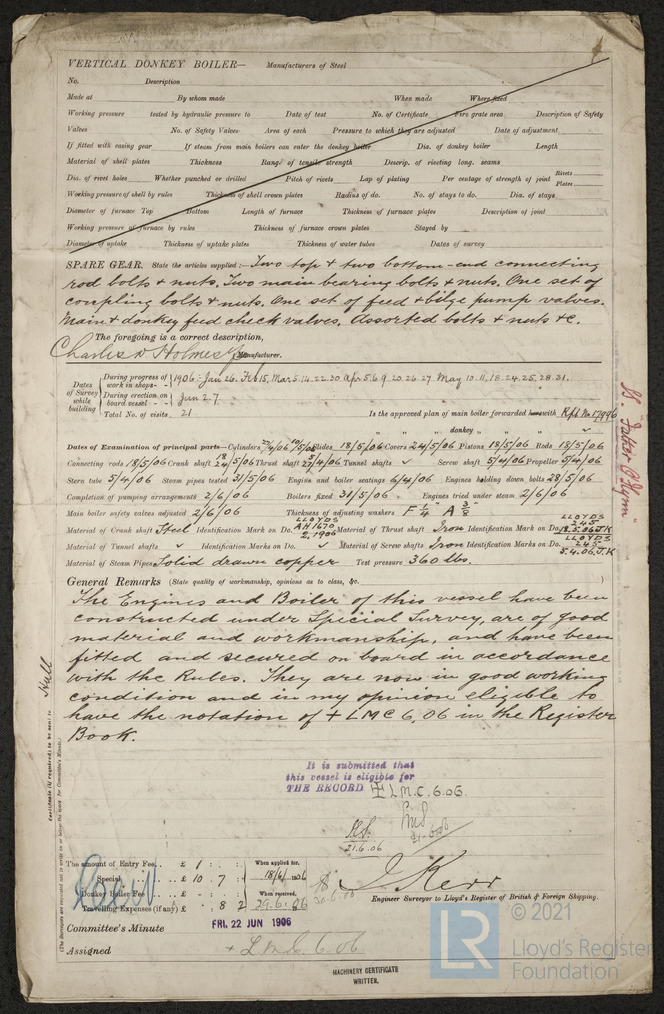 VERTICAL DONKEY BOILER— Manufacturers of Steel
No. Description
Made at By whom made When made Where fixed
Working pressure tested by hydraulic pressure to Date of test No. of Certificate Fire grate area Description of Safety
Valves No. of Safety Valves Area of each Pressure to which they are adjusted Date of adjustment
If fitted with easing gear If steam from main boilers can enter the donkey boiler Dia. of donkey boiler Length
Material of shell plates Thickness Range of tensile strength Descrip. of riveting long. seams
Dia. of rivet holes Whether punched or drilled Pitch of rivets Lap of plating Per centage of strength of joint Rivets Plates
Working pressure of shell by rules Thickness of shell crown plates Radius of do. No. of stays to do. Dia. of stays
Diameter of furnace Top Bottom Length of furnace Thickness of furnace plates Description of joint
Working pressure of furnace by rules Thickness of furnace crown plates Stayed by
Diameter of uptake Thickness of uptake plates Thickness of water tubes Dates of survey
SPARE GEAR. State the articles supplied:— Two top & two bottom-end connecting
rod bolts & nuts. Two main bearing bolts & nuts. One set of
coupling bolts & nuts. One set of feed & bilge pump valves.
Main & donkey feed check valves. Assorted bolts & nuts &c.
The foregoing is a correct description,
Charles D Holmes & Co Manufacturer.
Dates of Survey while building
During progress of work in shops - - 1906: Jan 26. Feb 15, Mar 5. 14. 22. 30 Apr 5. 6. 9. 20. 26. 27 May 10. 11. 18. 24. 25. 28. 31.
During erection on board vessel - - Jun 2. 7.
Total No. of visits 21
Is the approved plan of main boiler forwarded herewith Rpt No 17996
" " " donkey " " "
Dates of Examination of principal parts—Cylinders 27/4/06 10/5/06 Slides 18/5/06 Covers 24/5/06 Pistons 18/5/06 Rods 18/5/06
Connecting rods 18/5/06 Crank shaft 18 24/5/06 Thrust shaft 27/4/06 Tunnel shafts ✓ Screw shaft 5/4/06 Propeller 5/4/06
Stern tube 5/4/06 Steam pipes tested 31/5/06 Engine and boiler seatings 6/4/06 Engines holding down bolts 28/5/06
Completion of pumping arrangements 2/6/06 Boilers fixed 31/5/06 Engines tried under steam 2/6/06
Main boiler safety valves adjusted 2/6/06 Thickness of adjusting washers F 1/4" A 3/8"
Material of Crank shaft Steel Identification Mark on Do. LLOYDS AH 1670 2,1906 Material of Thrust shaft Iron Identification Mark on Do. LLOYDS 245 18.5.06 J.K
Material of Tunnel shafts ✓ Identification Marks on Do. ✓ Material of Screw shafts Iron Identification Marks on Do. LLOYDS 245 5.4.06. J.K
Material of Steam Pipes Solid drawn copper Test pressure 360 lbs.
General Remarks (State quality of workmanship, opinions as to class, &c.
The Engines and Boiler of this vessel have been
constructed under Special Survey, are of good
material and workmanship, and have been
fitted and secured on board in accordance
with the Rules. They are now in good working
condition and in my opinion eligible to
have the notation of + LMC 6,06 in the Register
Book.
It is submitted that
this vessel is eligible for
THE RECORD + L.M.C. 6.06.
21.6.06
21.6.06
The amount of Entry Fee . . £ 1 : :
Special . . £ 10 . 7 :
Donkey Boiler Fee . . £ - : :
Travelling Expenses (if any) £ : 8 . 2
When applied for, 18/6/1906
When received, 29.6.06
30.6.06
J Kerr
Engineer Surveyor to Lloyd's Register of British & Foreign Shipping.
Committee's Minute FRI. 22 JUN 1906
Assigned + L M C 6.06
MACHINERY CERTIFICATE
WRITTEN.
Certificate (if required) to be sent to Hull
(The Surveyors are requested not to write on or below the space for Committee's Minute.)
© 2021
LR
Lloyd's Register
Foundation